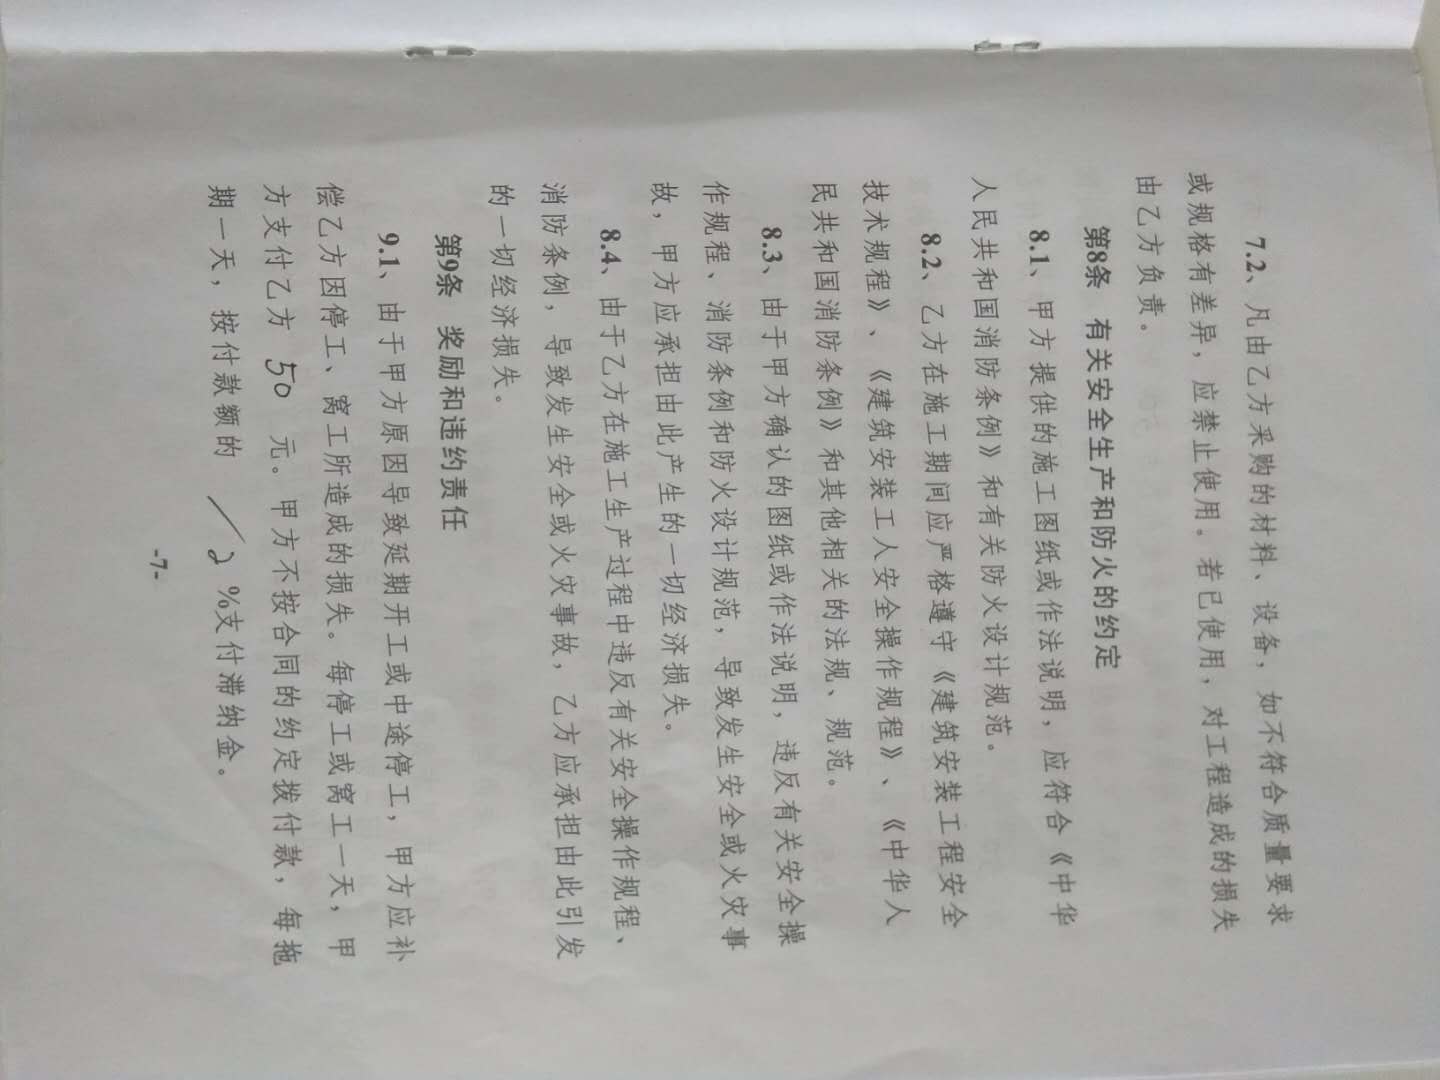 7.2、凡由乙方采购的材料、设备，如不符合质量要求
或规格有差异，应禁止使用。若已使用，对工程造成的损失
由乙方负责。
第8条 有关安全生产和防火的约定
8.1、甲方提供的施工图纸或作法说明，应符合《中华
人民共和国消防条例》和有关防火设计规范。
8.2、乙方在施工期间应严格遵守《建筑安装工程安全
技术规程》、《建筑安装工人安全操作规程》、《中华人
民共和国消防条例》和其他相关的法规、规范。
8.3、由于甲方确认的图纸或作法说明，违反有关安全操
作规程、消防条例和防火设计规范，导致发生安全或火灾事
故，甲方应承担由此产生的一切经济损失。
8.4、由于乙方在施工生产过程中违反有关安全操作规程、
消防条例，导致发生安全或火灾事故，乙方应承担由此引发
的一切经济损失。
第9条 奖励和违约责任
9.1、由于甲方原因导致延期开工或中途停工，甲方应补
偿乙方因停工、窝工所造成的损失。每停工或窝工一天，甲
方支付乙方 50 元。甲方不按合同的约定拨付款，每拖
期一天，按付款额的 %支付滞纳金。
-7-